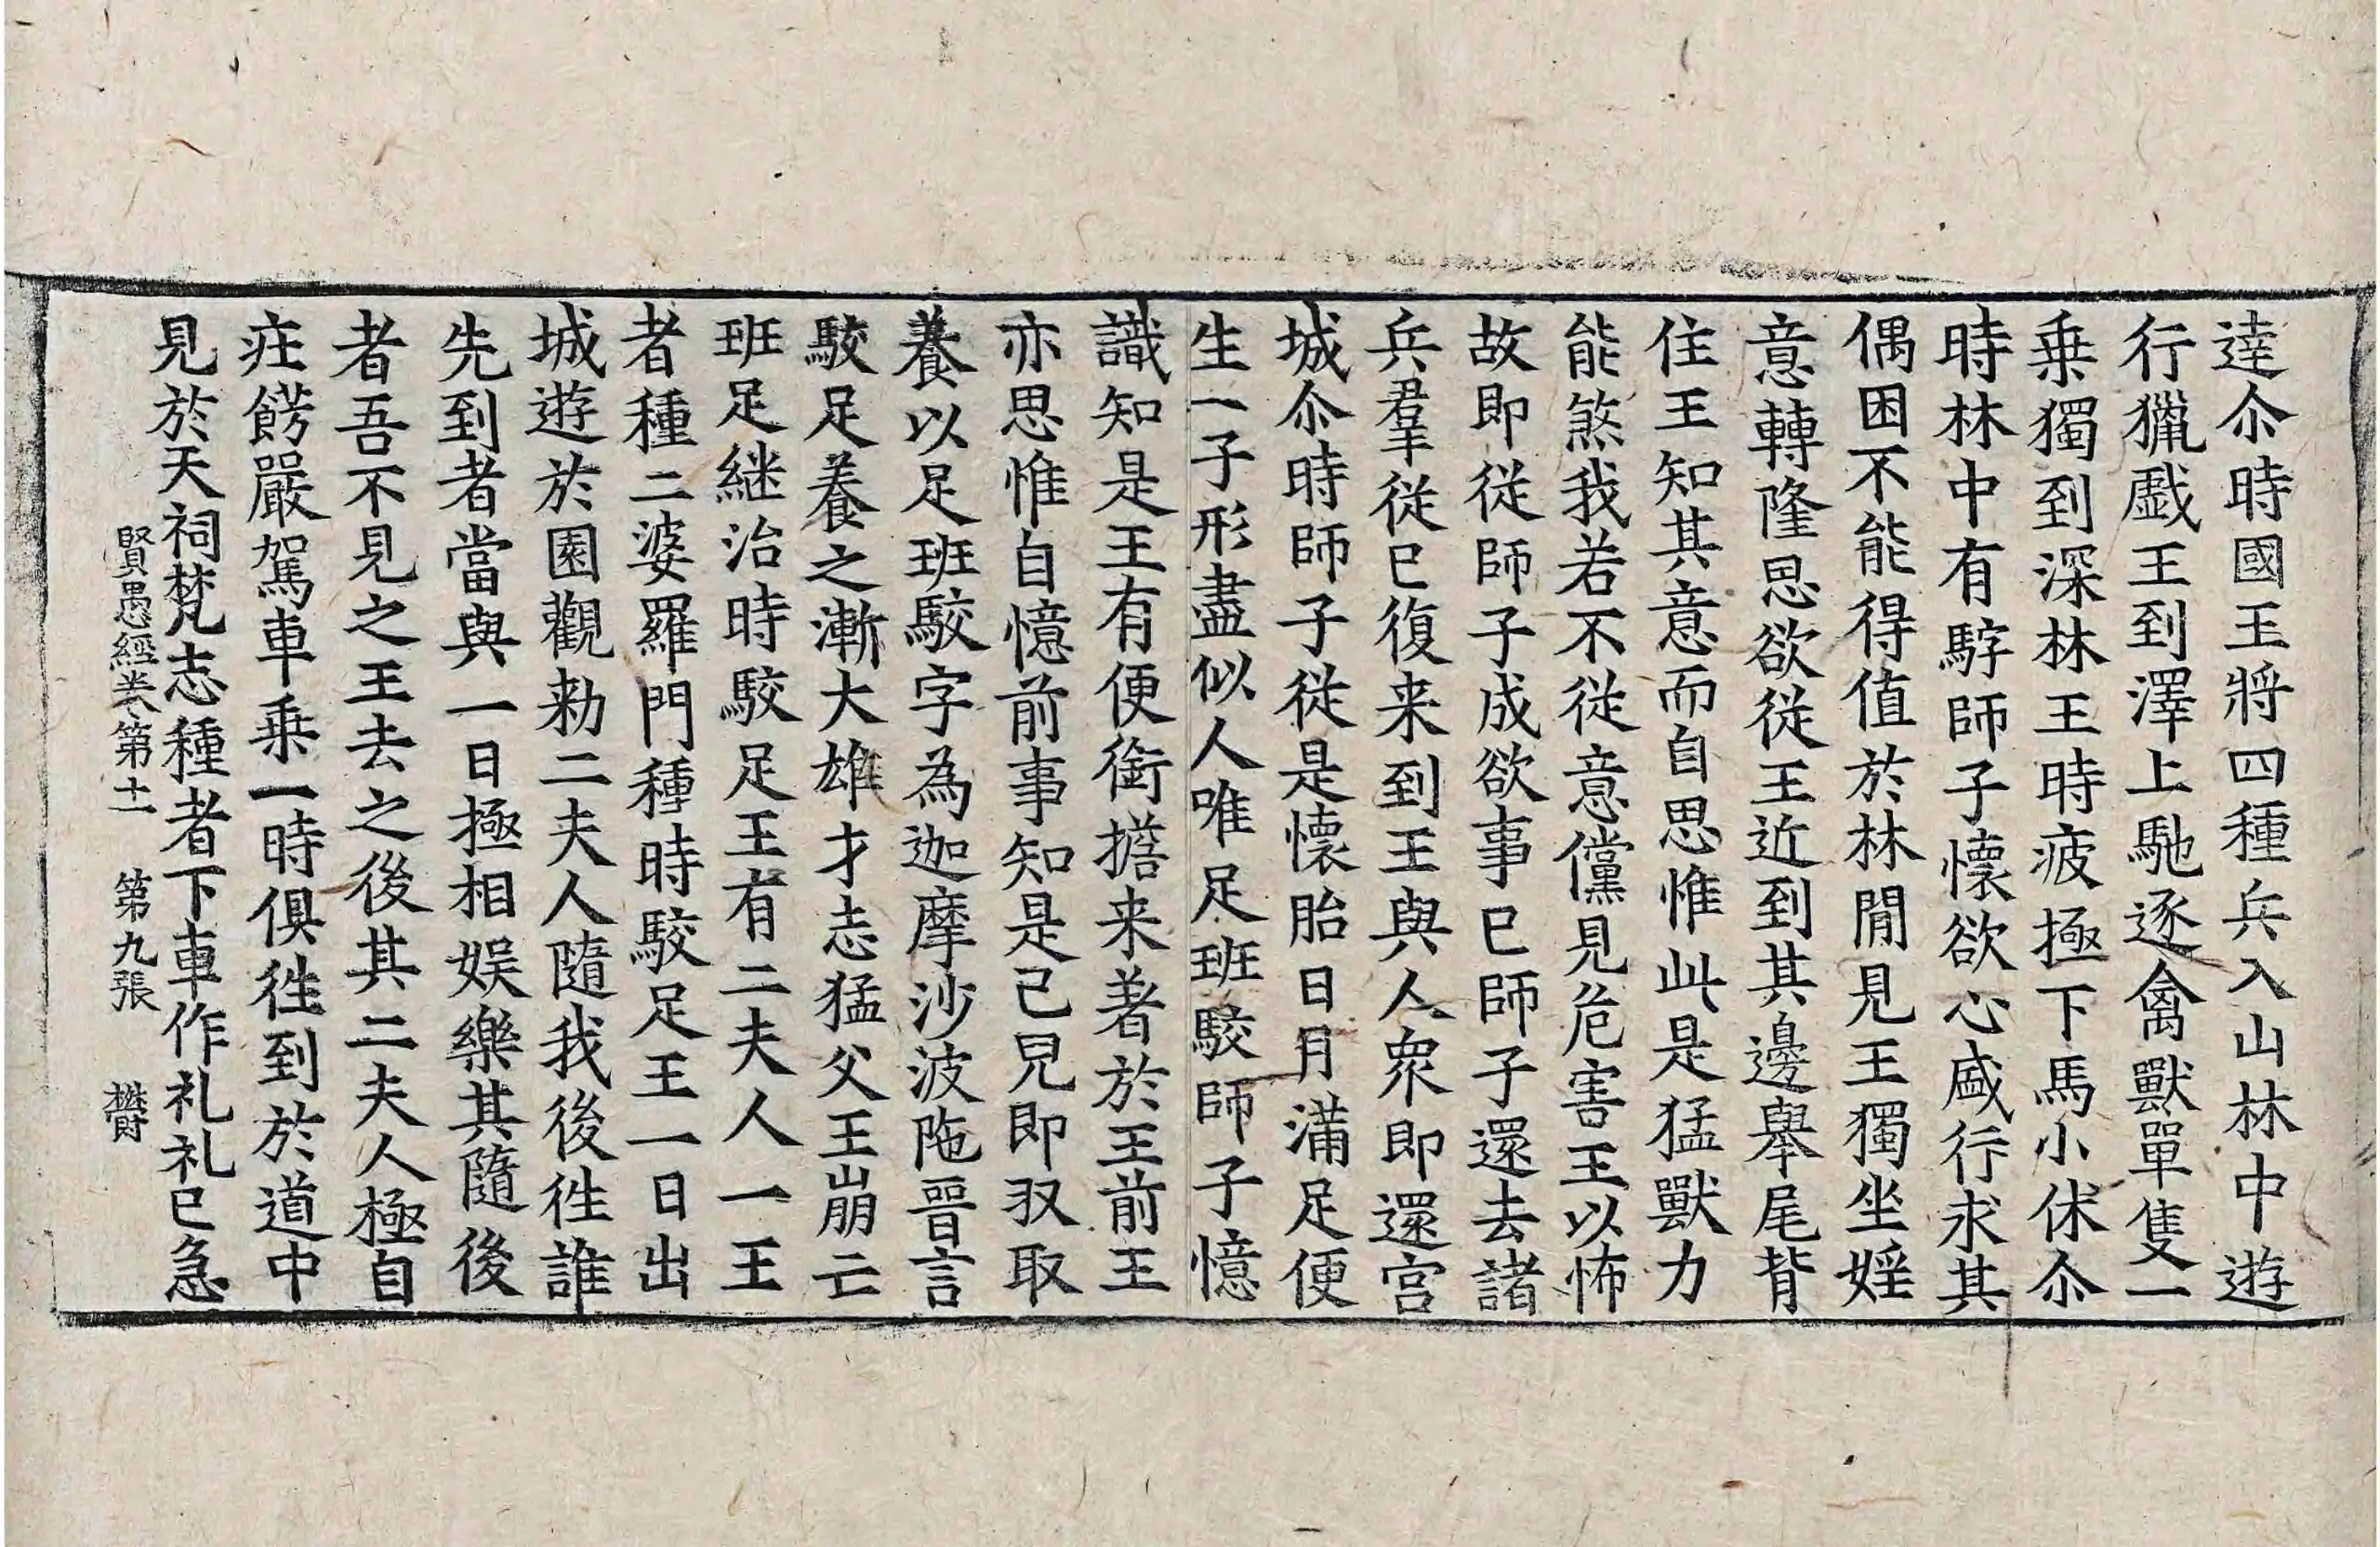 逹尒時國王將四種兵入山林中遊
行獵戲王到澤上馳逐禽獸單隻一
乗獨到深林王時疲極下馬小休尒
時林中有騲師子懷欲心盛行求其
偶困不能得值於林閒見王獨坐婬
意轉隆思欲從王近到其邊舉尾背
住王知其意而自思惟此是猛獸力
能煞我若不從意儻見危害王以怖
故即從師子成欲事已師子還去諸
兵羣從已復来到王與人衆即還宫
城尒時師子從是懷胎日月滿足便
生一子形盡似人唯足班駮師子憶
識知是王有便銜擔来著於王前王
亦思惟自憶前事知是己兒即収取
養以足班駮字為迦摩沙波陁晉言
駮足養之漸大雄才志猛父王崩亡
班足継治時駮足王有二夫人一王
者種二婆羅門種時駮足王一日出
城遊於園觀勑二夫人隨我後徃誰
先到者當與一日極相娱樂其隨後
者吾不見之王去之後其二夫人極自
疘餝嚴駕車乗一時俱徃到於道中
見於天祠梵志種者下車作礼礼已急
賢愚經卷第十一 第九張 欎